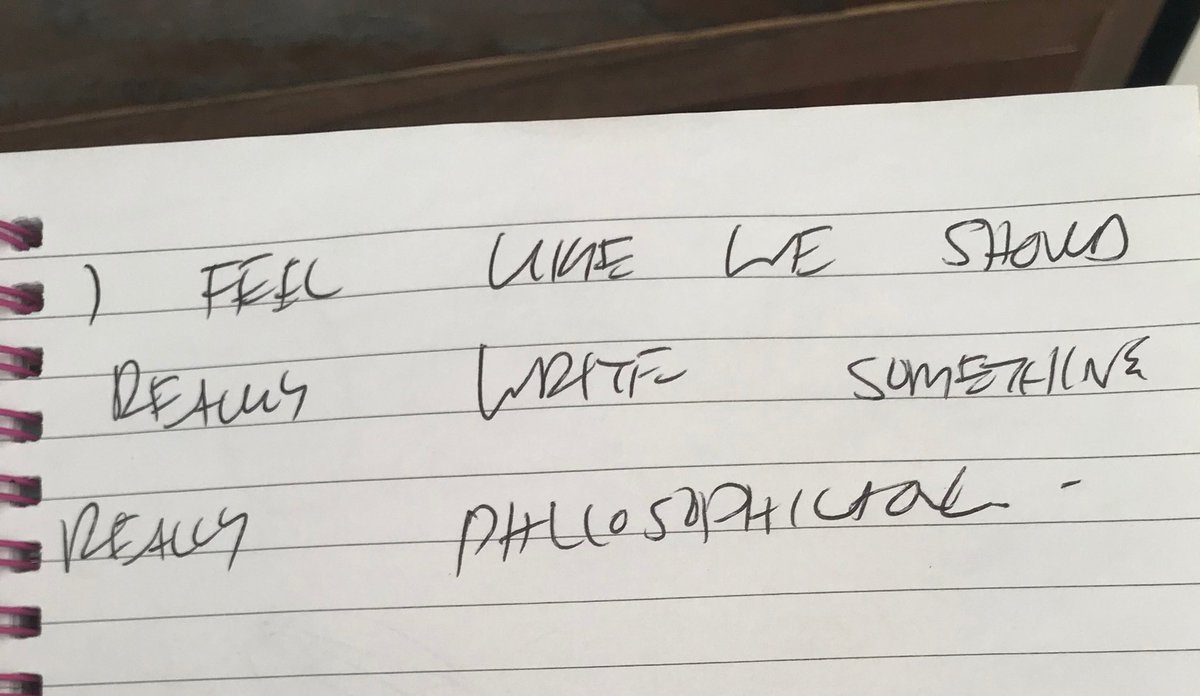 I FEEL LIKE WE SHOULD
REALLY WRITE SOMETHING
REALLY PHILOSOPHICAL -